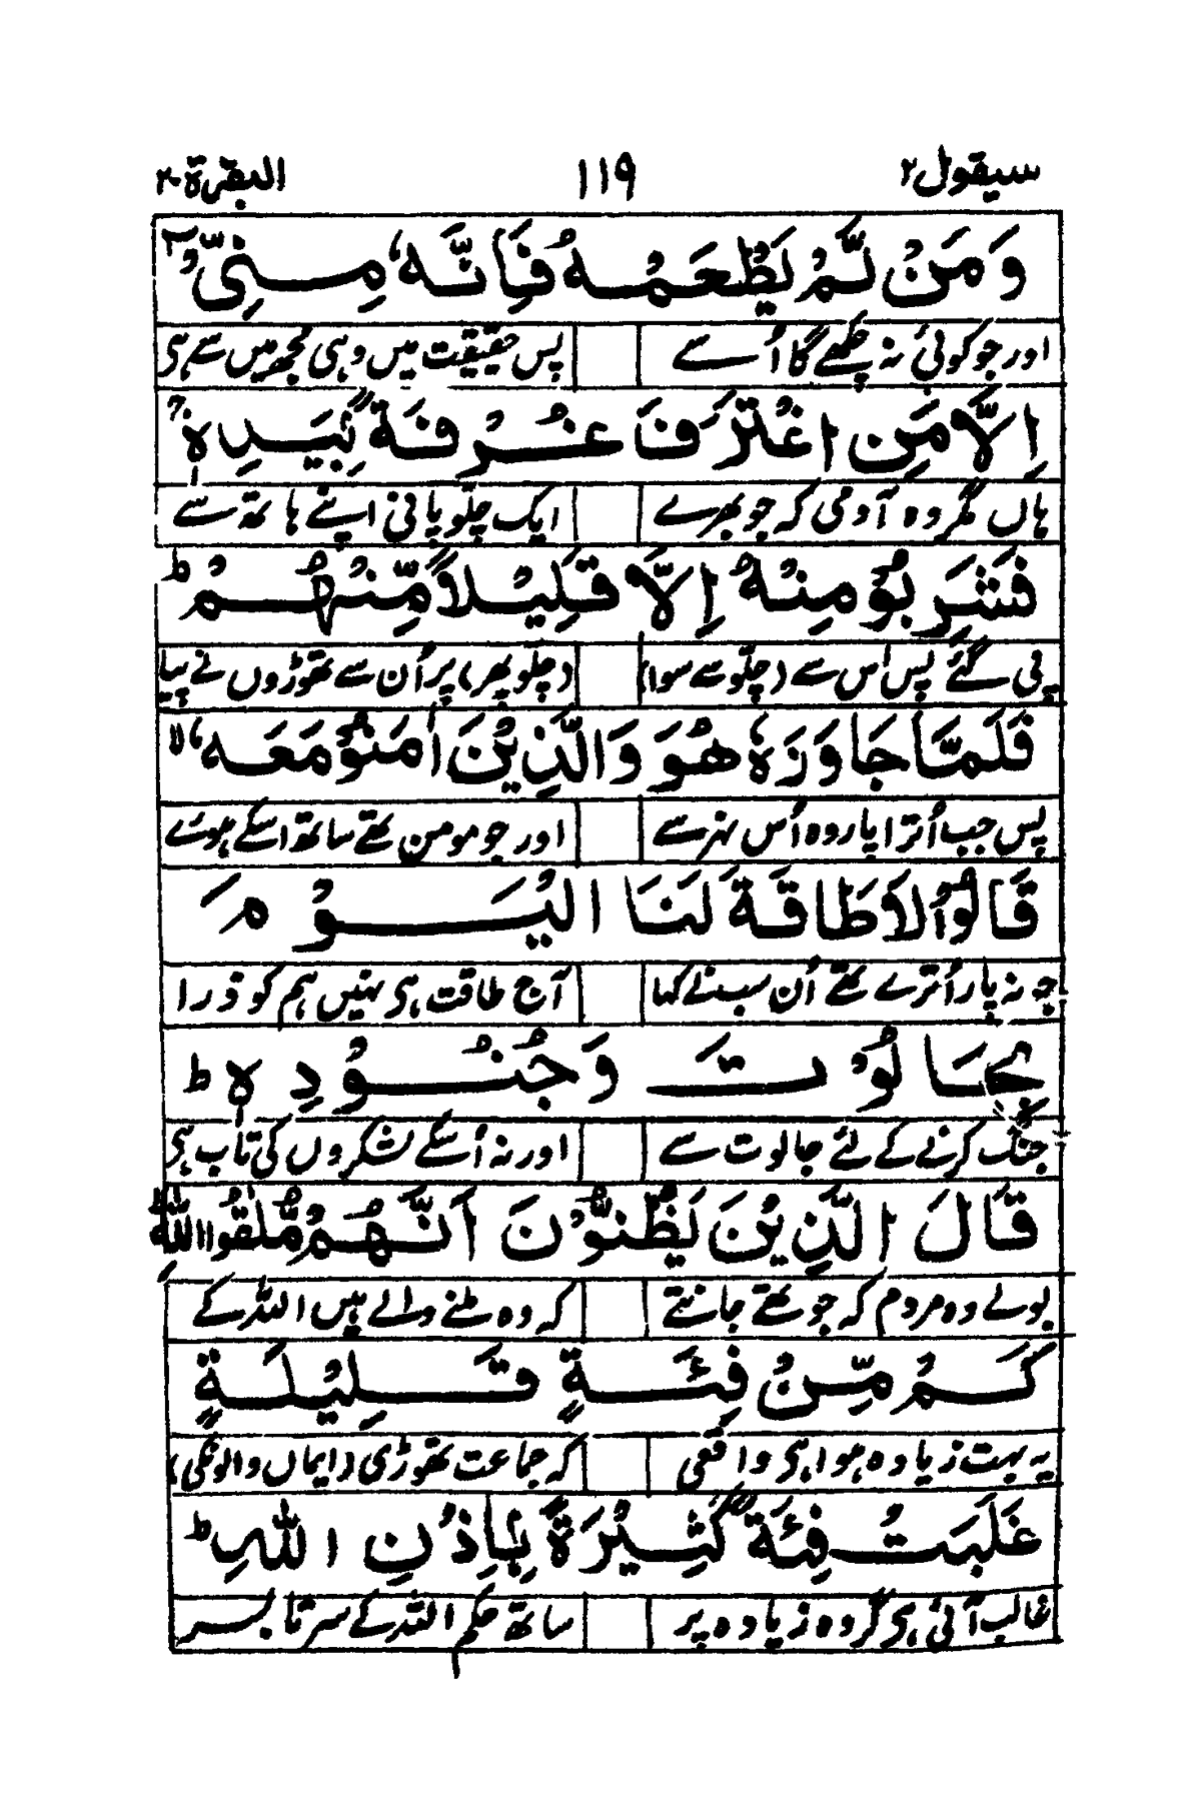 سیقول ۲ ۱۱۹ البقرۃ ۲۰
وَمَنْ لَّمْ يَطْعَمْهُ فَاِنَّهٗ مِنِّيْ
اور جو کوئی نہ چکھے گا اُسے پس حقیقت میں وہی مجھ میں سے ہی
اِلَّا مَنِ اغْتَرَفَ غُرْفَةًۢ بِيَدِهٖ ۚ
ہاں مگر وہ آدمی کہ جو بھرے ایک چلّو پانی اپنے ہاتھ سے
فَشَرِبُوْ مِنْهُ اِلَّا قَلِيْلًا مِّنْهُمْ ط
پی گئے پس اُس سے (چلّو سے سوا) (چلو بھر) پر اُن سے تھوڑوں نے پیا
فَلَمَّا جَاوَزَهٗ هُوَ وَالَّذِيْنَ اٰمَنُوْ مَعَهٗ لا
پس جب اُترا پار وہ اُس نہر سے اور جو مومن تھے ساتھ اسکے ہوئے
قَالُوْا لَا طَاقَةَ لَنَا الْيَوْمَ
جو نہ پار اُترے تھے اُن سب نے کہا آج طاقت ہی نہیں ہم کو ذرا
بِجَالُوْتَ وَجُنُوْدِهٖ ط
جنگ کرنے کے لئے جالوت سے اور نہ اُسکے لشکروں کی تاب ہی
قَالَ الَّذِيْنَ يَظُنُّوْنَ اَنَّهُمْ مُّلٰقُوا اللّٰهِ
بولے وہ مردم کہ جو تھے جانتے کہ وہ ملنے والے ہیں اللہ کے
كَمْ مِّنْ فِئَةٍ قَلِيْلَةٍ
یہ بہت زیادہ ہوا ہی واقعی کہ جماعت تھوڑی (ایماں والونکی)
غَلَبَتْ فِئَةً كَثِيْرَةًۢ بِاِذْنِ اللّٰهِ ط
غالب آئی ہی گروہ زیادہ پر ساتھ حکم اللہ کے سر تا بسر